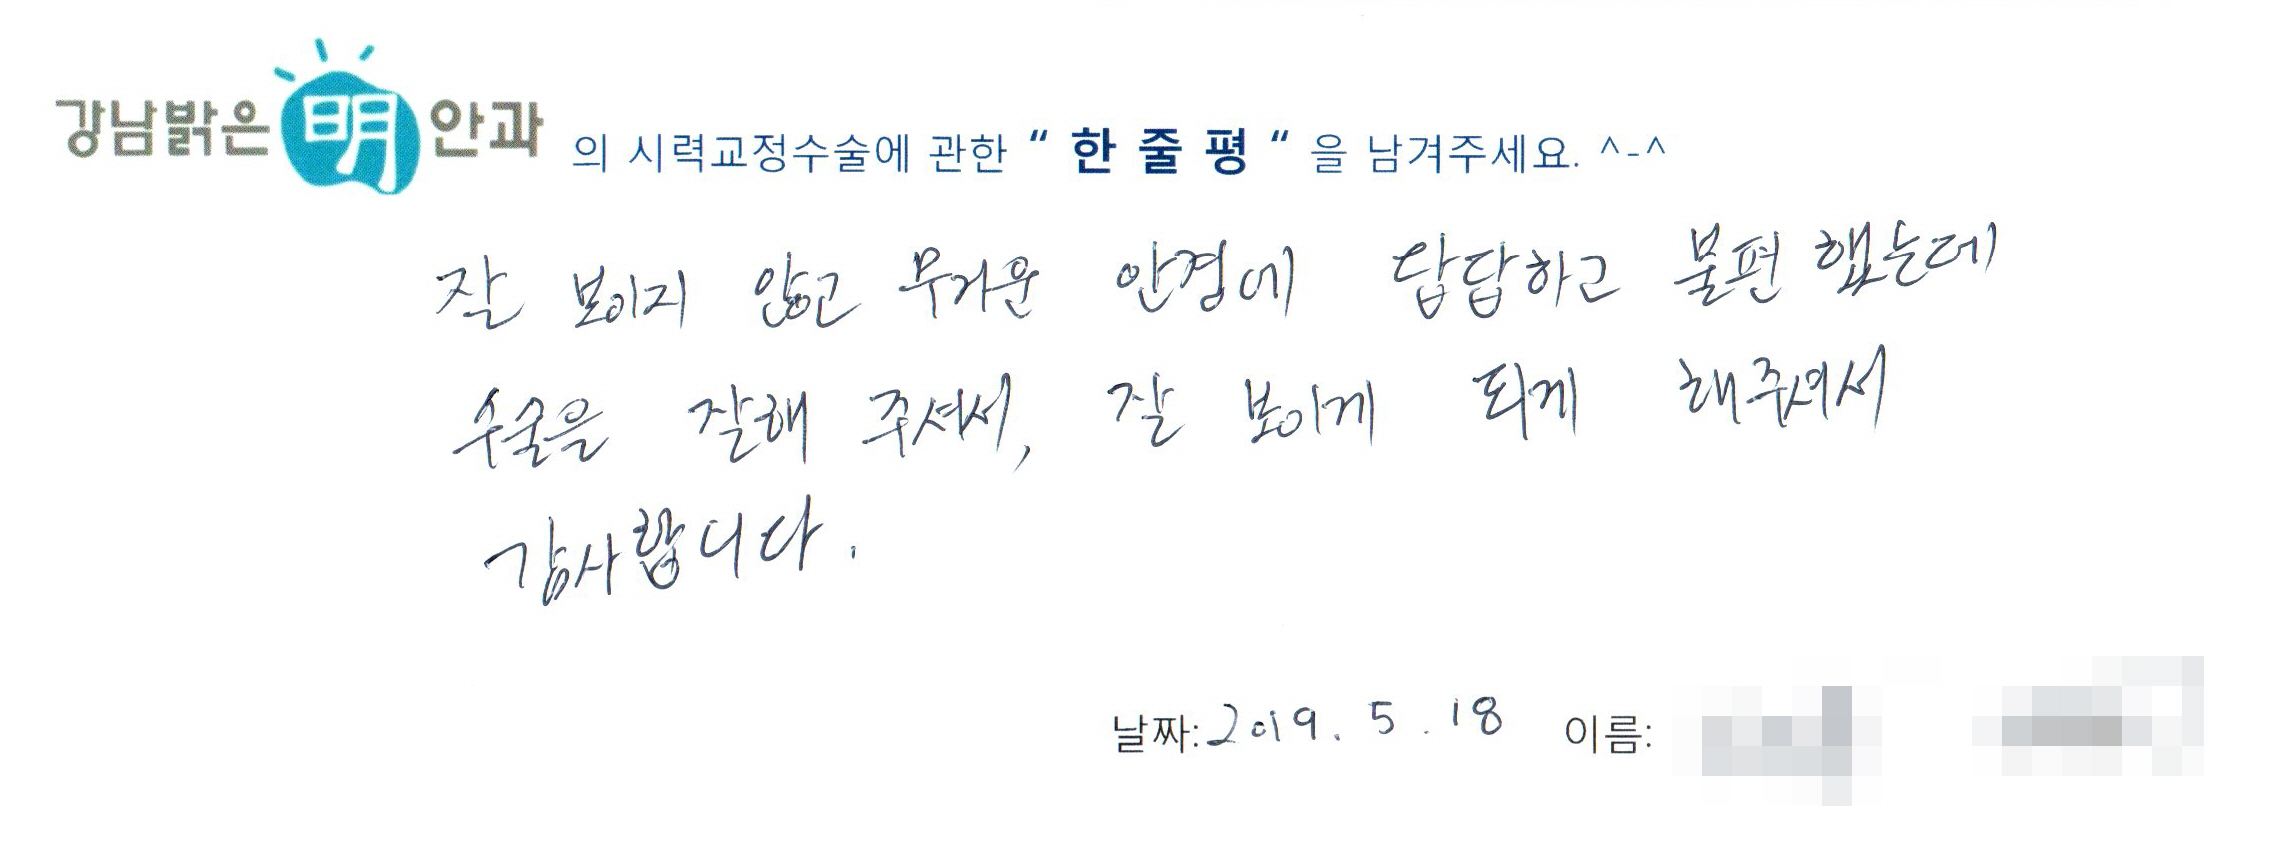 강남밝은 明 안과 의 시력교정수술에 관한 “ 한 줄 평 “ 을 남겨주세요. ^-^
잘 보이지 않고 무거운 안경에 답답하고 불편 했는데
수술을 잘해 주셔서, 잘 보이게 되게 해주셔서
감사합니다.
날짜: 2019. 5. 18 이름: